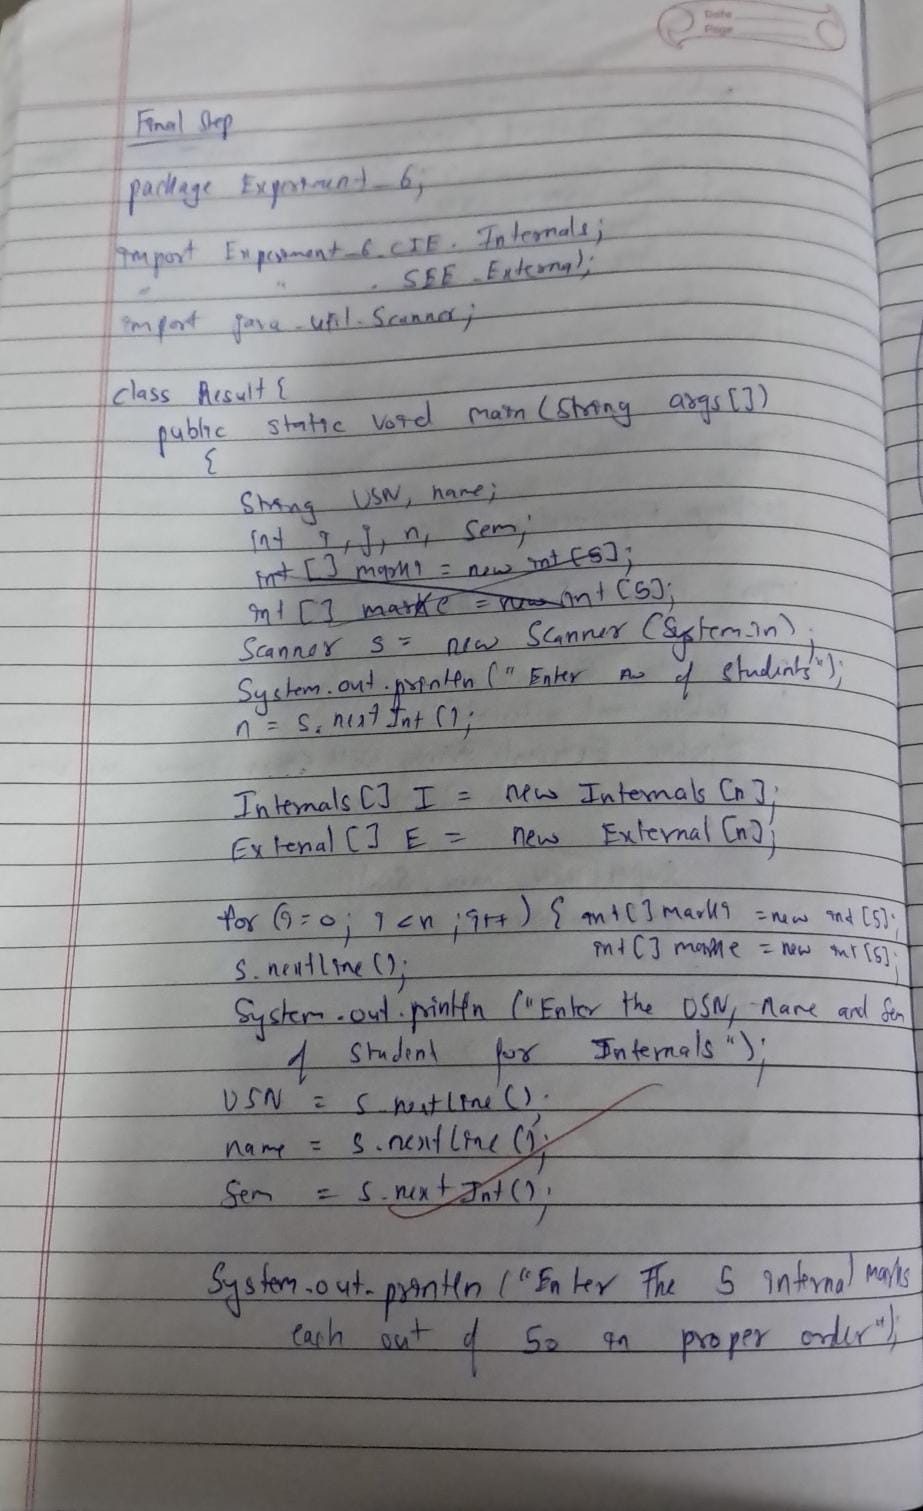 Date
Page
Final Step
package Experiment_6;
import Experiment_6.CIE.Internals;
" " . SEE.External;
import java.util.Scanner;
class Result {
public static void main (String args[])
{
String USN, name;
int i, j, n, sem;
int [] marki = new int [5];
int [] marke = new int [5];
Scanner s = new Scanner (System.in);
System.out.println (" Enter no of students");
n = s.nextInt ();
Internals [] I = new Internals [n];
Extenal [] E = new External [n];
for (i=0; i<n; i++) { int [] marki = new int [5];
int [] marke = new int [5];
s.nextline ();
System.out.println ("Enter the USN, name and sem
of student for Internals");
USN = s.nextline ();
name = s.nextline ();
Sem = s.next Int ();
System.out.println ("Enter The 5 internal marks
each out of 50 in proper order");